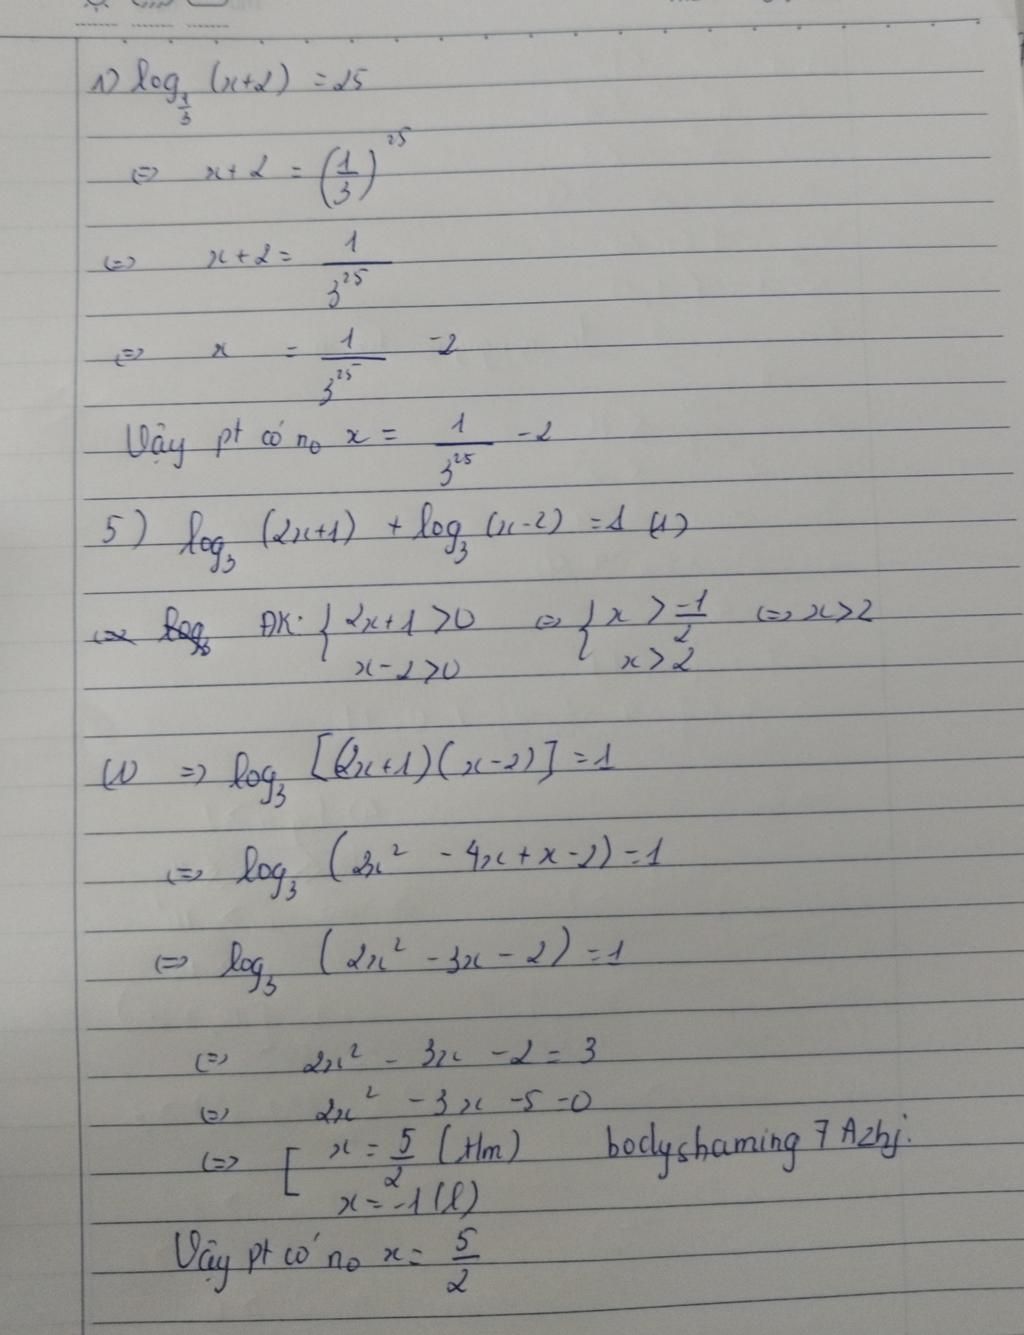 1) log_{1/3} (x+2) = 25
<=> x+2 = (1/3)^{25}
<=> x+2 = 1/3^{25}
<=> x = 1/3^{25} -2
Vậy pt có n_0 x = 1/3^{25} - 2
5) log_3 (2x+1) + log_3 (x-2) = 1 (1)
ĐK: { 2x+1 >0 <=> { x > -1/2 <=> x>2
x-2>0 x>2
(1) => log_3 [(2x+1)(x-2)] = 1
<=> log_3 (2x^2 - 4x + x - 2) = 1
<=> log_3 (2x^2 - 3x - 2) = 1
<=> 2x^2 - 3x - 2 = 3
<=> 2x^2 - 3x - 5 = 0
<=> [ x = 5/2 (tm) bodyshaming 7 A2hj.
x = -1 (l)
Vậy pt có n_0 x = 5/2